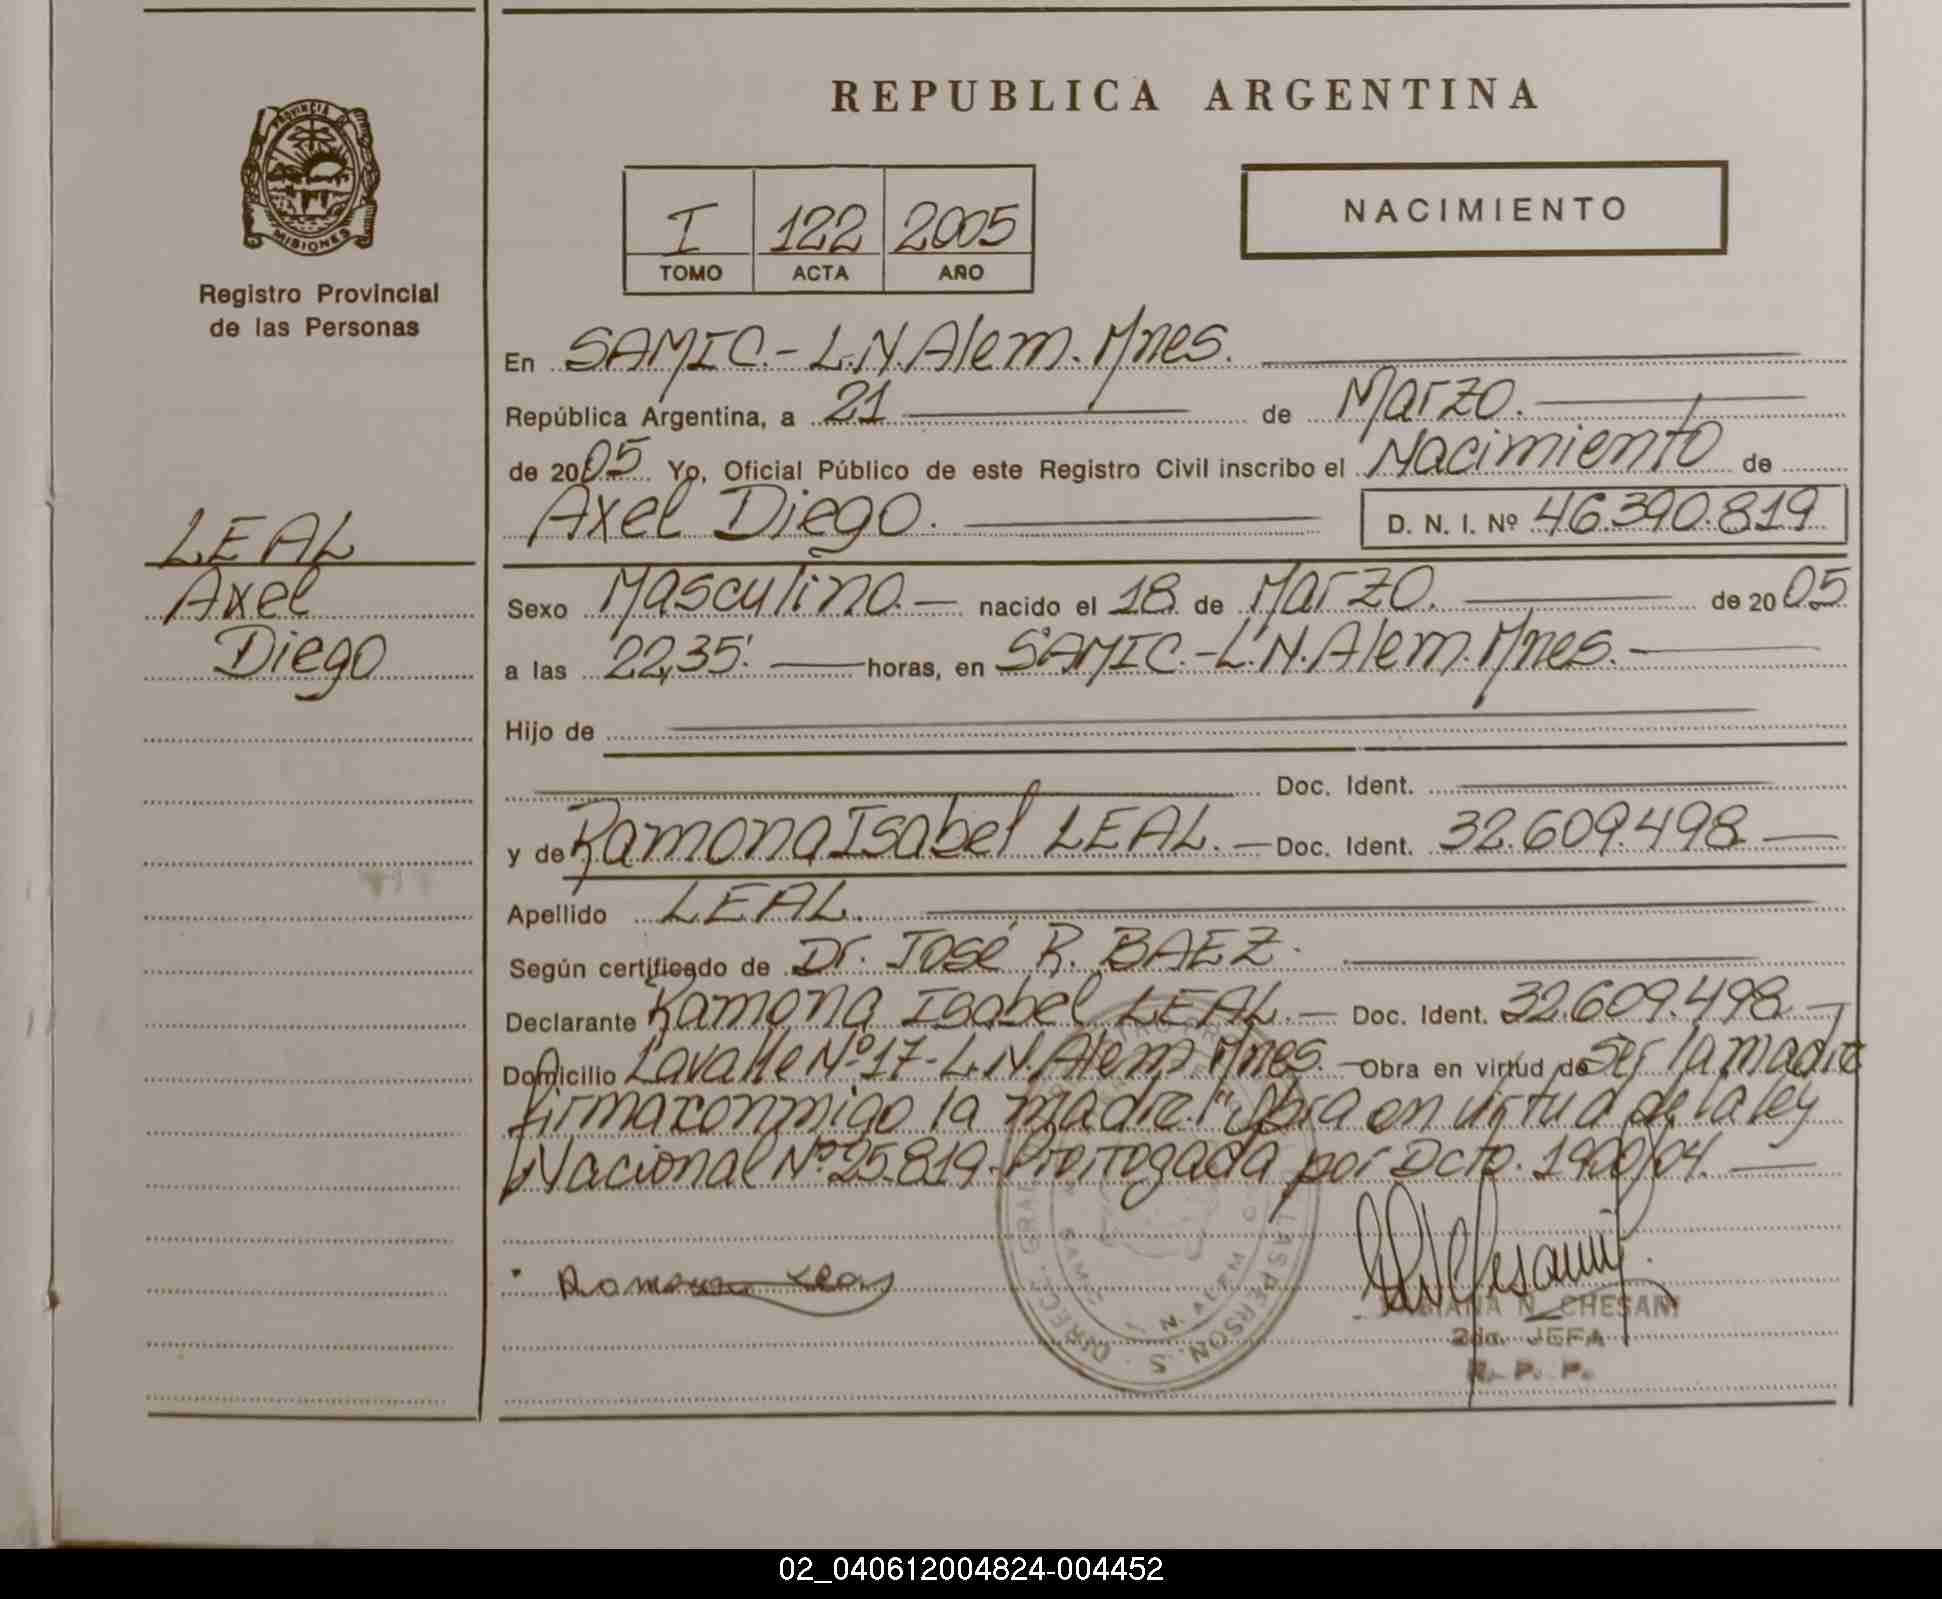 REPUBLICA ARGENTINA
PROVINCIA DE
MISIONES
Registro Provincial
de las Personas
I 122 2005
TOMO ACTA AÑO
NACIMIENTO
En SAMIC.- L.N. Alem. Mnes.
República Argentina, a 21 de Marzo.
de 2005 Yo, Oficial Público de este Registro Civil inscribo el Nacimiento de
Axel Diego. D. N. I. Nº 46.390.819
LEAL
Axel
Diego
Sexo Masculino.— nacido el 18 de Marzo. de 2005
a las 22,35'. horas, en SAMIC.- L.N. Alem. Mnes.-
Hijo de
Doc. Ident.
y de Ramona Isabel LEAL.— Doc. Ident. 32.609.498
Apellido LEAL.
Según certificado de Dr. José R. BAEZ.
Declarante Ramona Isabel LEAL.— Doc. Ident. 32.609.498
Domicilio Lavalle Nº 17- L.N. Alem. Mnes. Obra en virtud de Ser la madre
firma conmigo la madre. "Obra en virtud de la ley
Nacional Nº 25.819. Prorrogada por Dcto. 1900/04.
Ramona Leal
N. CHESANI
2da. JEFA
R. P. P.
SAMIC
L. N. ALEM
02_040612004824-004452